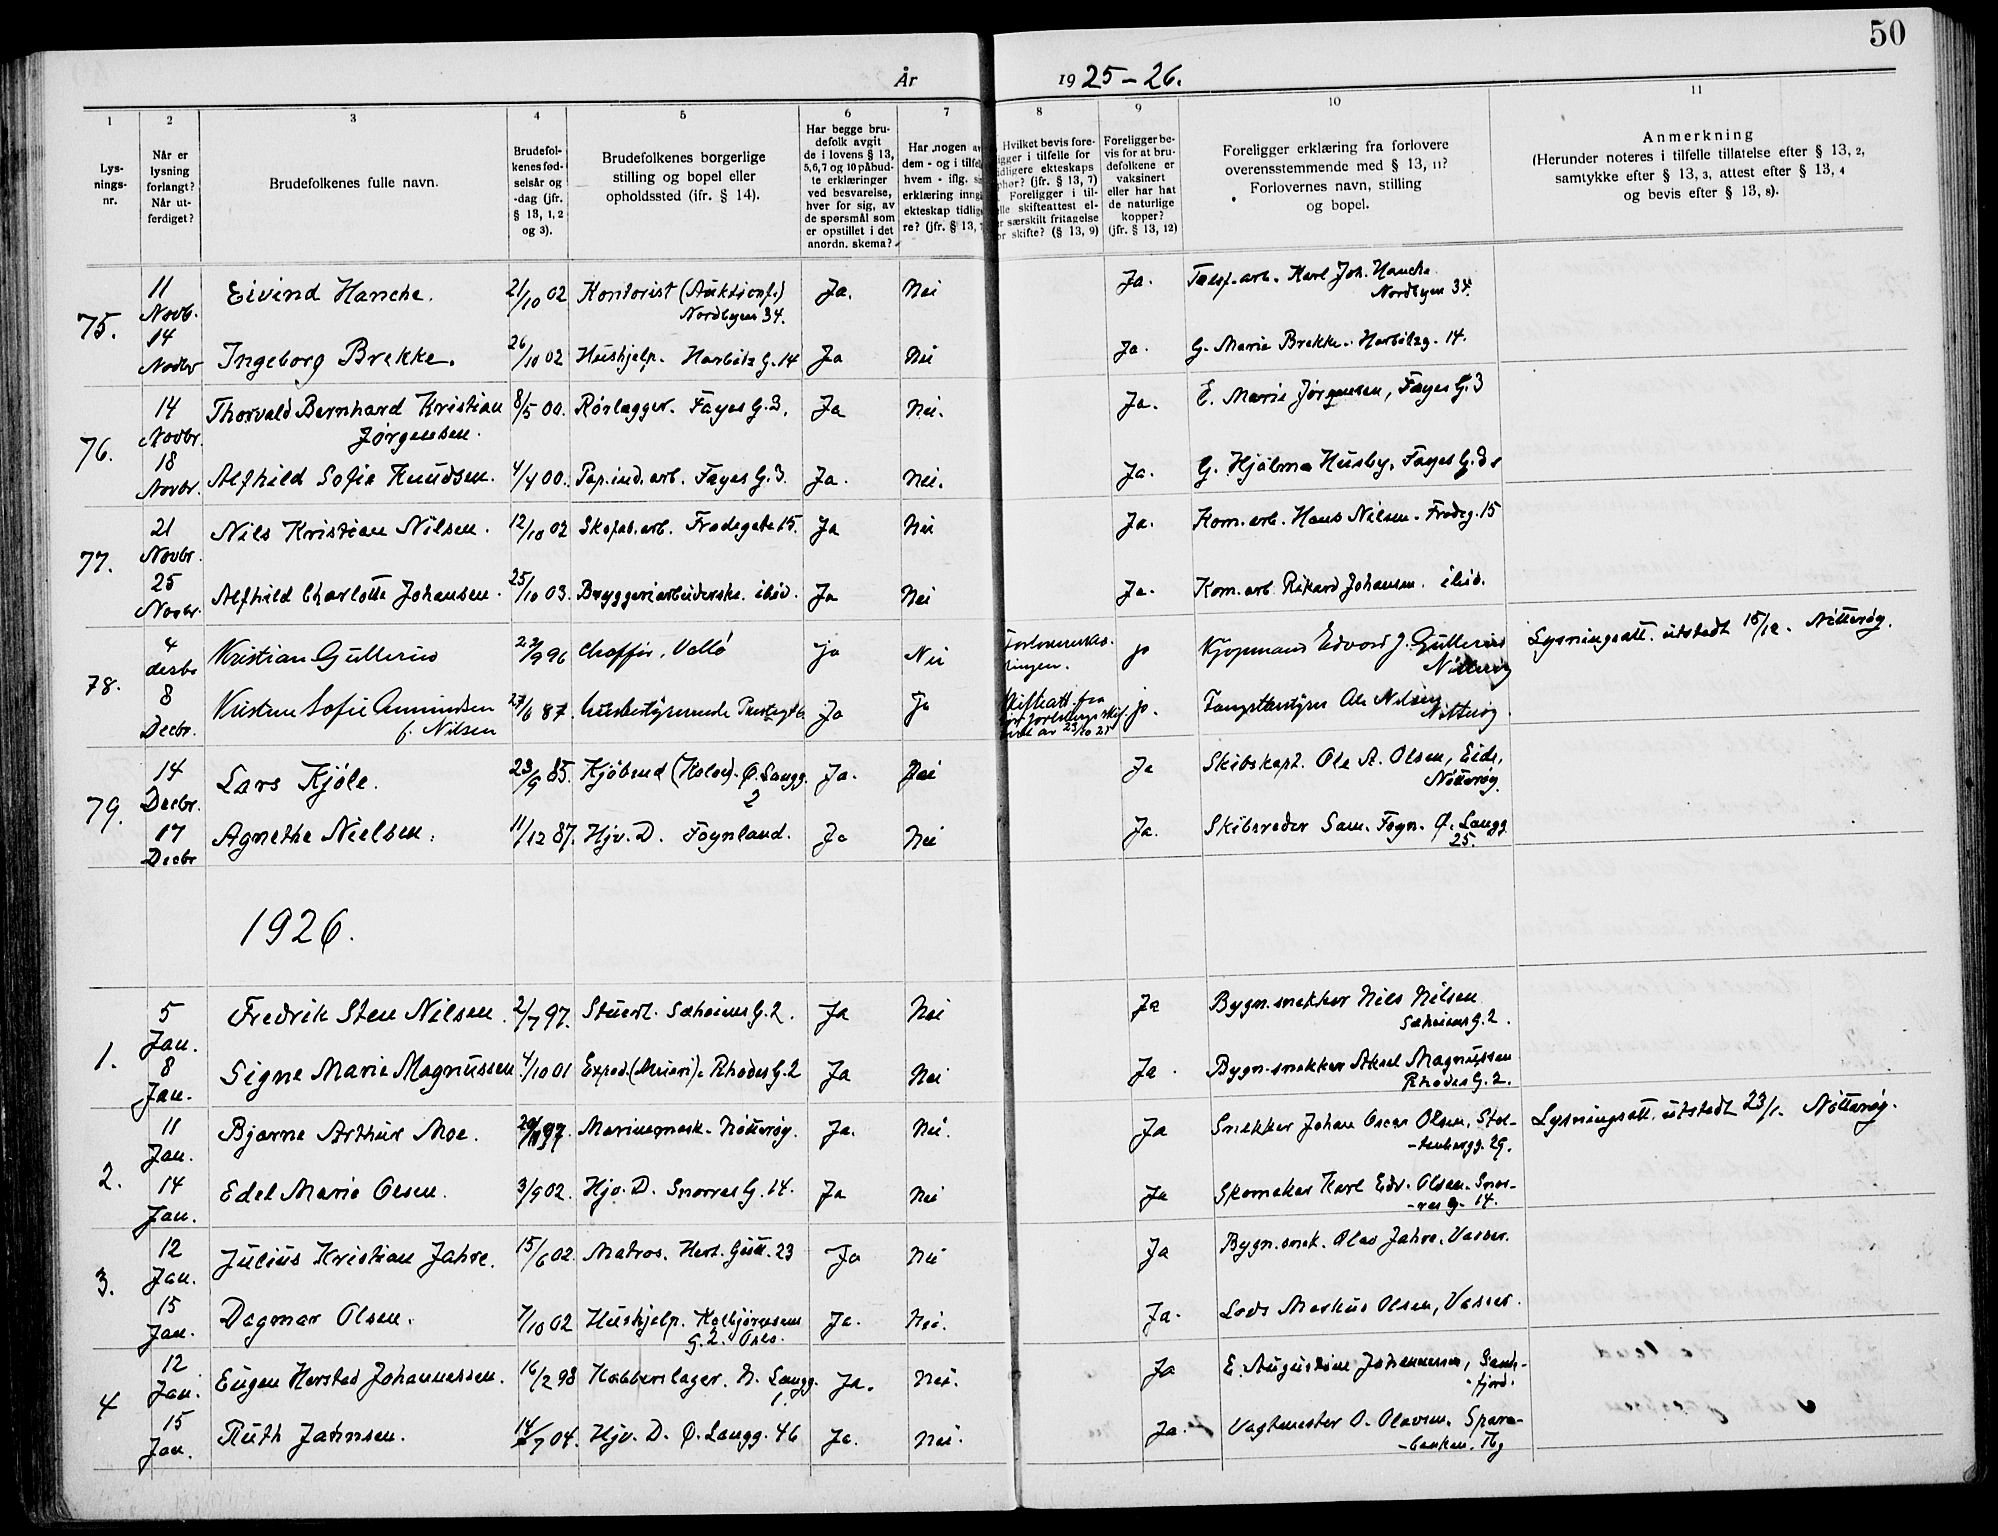 50
År 19 25 – 26.
1 2 3 4 5 6 7 8 9 10 11
Lys-
nings-
nr.
Når er
lysning
forlangt?
Når ut-
ferdiget?
Brudefolkenes fulle navn.
Brudefol-
kenes fød-
selsår og
-dag (jfr.
§ 13, 1, 2
og 3).
Brudefolkenes borgerlige
stilling og bopel eller
opholdssted (jfr. § 14).
Har begge bru-
defolk avgit
de i lovens § 13,
5,6,7 og 10 påbud-
te erklæringer
ved besvarelse,
hver for sig, av
de spørsmål som
er opstillet i det
anordn. skema?
Har nogen
dem - og i tilfel
hvem - iflg.
erklæring inng
ekteskap tidlig
re? (jfr. § 13,
Hvilket bevis fore-
igger i tilfelle for
idligere ekteskaps
phør? (jfr. § 13, 7)
Foreligger i til-
elle skifteattest el-
er særskilt fritagelse
or skifte? (§ 13, 9)
Foreligger be-
vis for at bru-
defolkene er
vaksinert
eller har hat
de naturlige
kopper?
(jfr. § 13, 12)
Foreligger erklæring fra forlovere
overensstemmende med § 13, 11?
Forlovernes navn, stilling
og bopel.
Anmerkning
(Herunder noteres i tilfelle tillatelse efter § 13, 2,
samtykke efter § 13, 3, attest efter § 13, 4
og bevis efter § 13, 8).
75. 11 Novb. Eivind Hanche. 21/10 02 Kontorist (Auktionsf.) Nordbyen 34. Ja. Nei Ja. Karl Joh. Hanche Nordbyen 34.
14 Novbr Ingeborg Brekke. 26/10 02 Hushjelp. Harbitz G. 14 Ja Nei Ja. G. Marie Brekke. Harbitzg. 14.
76. 14 Novbr. Thorvald Bernhard Kristian Jørgensen. 8/5 00. Rørlægger. Fayes G. 3. Ja Nei. Ja. E. Marie Jørgensen, Fayes G. 3
18 Novbr. Alfhild Sofie Knudsen. 4/4 00. Pap.ind.arb. Fayes G. 3. Ja. Nei. Ja. G. Hjalma Husby, Fayes G. 3.
77. 21 Novbr. Nils Kristian Nilsen. 12/10 02 Skofab.arb. Frodegate 15. Ja Nei Ja. Kom.arb. Hans Nilsen. Frodeg. 15
25 Novbr. Alfhild Charlotte Johansen. 25/10 03. Bryggeriarbeiderske. ibid. Ja Nei Ja. Kom.arb. Rikard Johansen. ibid.
78. 4 desbr Kristian Gullerus 22/9 96 Chaffør, Vallø Ja Nei Forlovererklæ- ringen. ja Kjøpmand Edvard J. Gullerus Nøtterøy Lysningsatt. utstedt 15/12. Nøtterøy.
8 Decbr. Kristine Sofie Amundsen f. Nilsen 27/6 87. husbestyrerinde Ja Ja Skifteatt. fra ja. Ole Nilsen Nøtterøy
79. 14 Decbr. Lars Kjøle. 23/9 85. Kjøbmd (Kolon). Ø. Langg. 2 Ja. Nei Ja Skibskapt. Ole A. Olsen, Eide, Nøtterøy.
17 Decbr Agnethe Nielsen. 11/12 87. Hjv. D. Føynland. Ja Nei Ja. Skibsreder Sam. Foyn. Ø. Langg. 25.
1926.
1. 5 Jan. Fredrik Sten Nilsen. 2/7 97. Stuert. Sæheims G. 2. Ja Nei Ja Bygn.snekker Nils Nilsen Sæheims G. 2.
8 Jan. Signe Marie Magnussen. 4/10 01 Exped. (Meieri). Rhodes G. 2 Ja Nei Ja. Bygn.snekker Aksel Magnussen Rhodes G. 2.
2. 11 Jan. Bjarne Arthur Moe. Marinemask. Nøtterøy. Ja. Nei. Ja Snekker Johan Oscar Olsen, Stol- -tenbergg. 29. Lysningsatt. utstedt 23/1. Nøtterøy.
14 Jan. Edel Marie Olsen. 3/9 02. Hjv. D. Snorres G. 14. Ja Nei Ja Skomaker Karl Edv. Olsen. Snor- -res g. 14.
3. 12 Jan. Julius Kristian Jahre. 15/6 02. Matros. Herl. Gutt. 23 Ja Nei Ja Bygn.snek. Olav Jahre, Vasser.
15 Jan. Dagmar Olsen. 7/10 02 Hushjelp. Kolbjørnsens G. 2. Oslo. Ja. Nei. Ja. Lods Markus Olsen, Vasser.
4 12 Jan. Eugen Harstad Johannessen. 16/2 98 Kobberslager. N. Langg. 1. Ja. Nei. Ja E. Augustine Johannessen, Sande- fjord.
15 Jan. Ruth Jahnsen. 14/7 04. Hjv. D. Ø. Langg. 46 Ja. Nei. Ja. Vagtmester O. Olavsen. Spare- -banken. Tbg